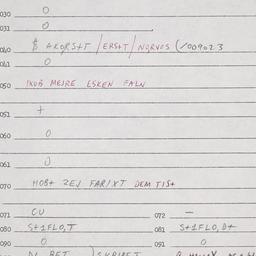 030 0
031 0
040 $ AKORS+T /ERS+T/ NORVOS (/009023
041 0
050 IKOB MEJRE LSKEN FALN
051 +
060 0
061 0
070 HOB+ ZEJ FARIXT DEM TIS+
071 CU 072 —
080 S+1FLO,T 081 S+1FLO,D+
090 0 091 0